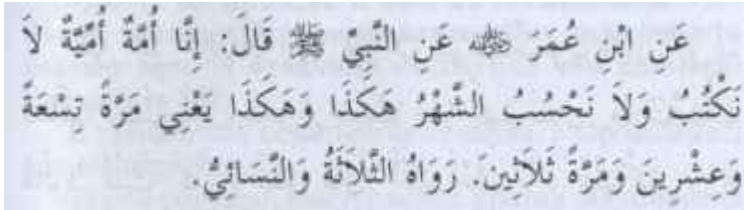 عَنِ ابْنِ عُمَرَ ﵁ عَنِ النَّبِيِّ ﷺ قَالَ: إِنَّا أُمَّةٌ أُمِّيَّةٌ لاَ
نَكْتُبُ وَلاَ نَحْسُبُ الشَّهْرُ هَكَذَا وَهَكَذَا يَعْنِي مَرَّةً تِسْعَةً
وَعِشْرِينَ وَمَرَّةً ثَلاَثِينَ. رَوَاهُ الثَّلاَثَةُ وَالنَّسَائِيُّ.